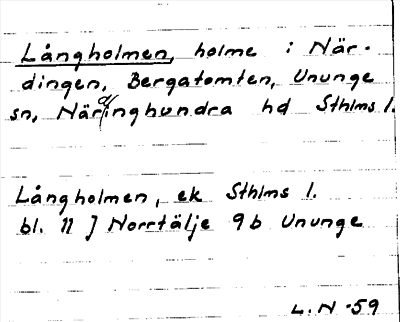 Långholmen, holme i När-
dingen, Bergatomten, Ununge
sn, Närdinghundra hd Sthlms l.
Långholmen, ek Sthlms l.
bl. 11 J Norrtälje 9b Ununge
L.N -59